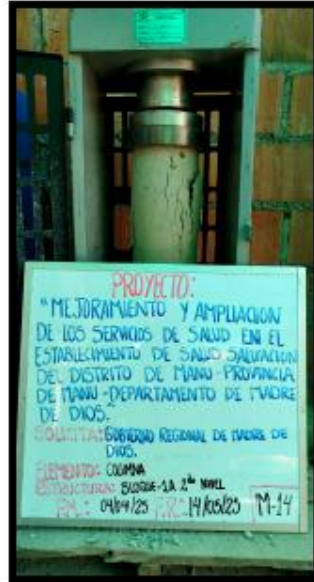 PROYECTO:
"MEJORAMIENTO Y AMPLIACION
DE LOS SERVICIOS DE SALUD EN EL
ESTABLECIMIENTO DE SALUD SALVACION
DEL DISTRITO DE MANU-PROVINCIA
DE MANU-DEPARTAMENTO DE MADRE
DE DIOS."
SOLICITA: GOBIERNO REGIONAL DE MADRE DE
DIOS.
ELEMENTO: COLUMNA
ESTRUCTURA: BLOQUE-1A 2do NIVEL
F.M.: 04/04/25 F.R.: 14/05/25 M-14